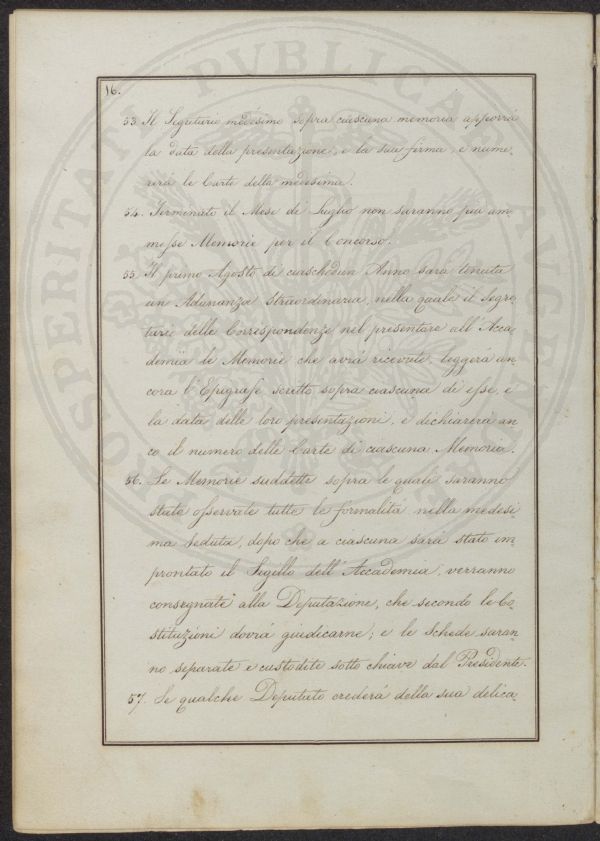 16.
53. Il Segretario medesimo sopra ciascuna memoria apporrà
la data della presentazione, e la sua firma, e nume-
rerà le Carte della medesima.
54. Terminato il Mese di Luglio non saranno più am-
messe Memorie per il Concorso.
55. Il primo Agosto di ciaschedun Anno sarà tenuta
un Adunanza straordinaria, nella quale il Segre-
tario delle Corrispondenze nel presentare all'Acca-
demia le Memorie che avrà ricevute, leggerà an-
cora l'Epigrafe scritto sopra ciascuna di esse, e
la data delle loro presentazioni, e dichiarerà an-
co il numero delle Carte di ciascuna Memoria.
56. Le Memorie suddette sopra le quali saranno
state osservate tutte le formalità nella medesi-
ma seduta, dopo che a ciascuna sarà stato im-
prontato il Sigillo dell'Accademia, verranno
consegnate alla Deputazione, che secondo le Co-
stituzioni dovrà giudicarne; e le Schede saran-
no separate e custodite sotto chiave dal Presidente.
57. Se qualche Deputato crederà della sua delica-
PROSPERITATI PUBLICAE AUGENDAE